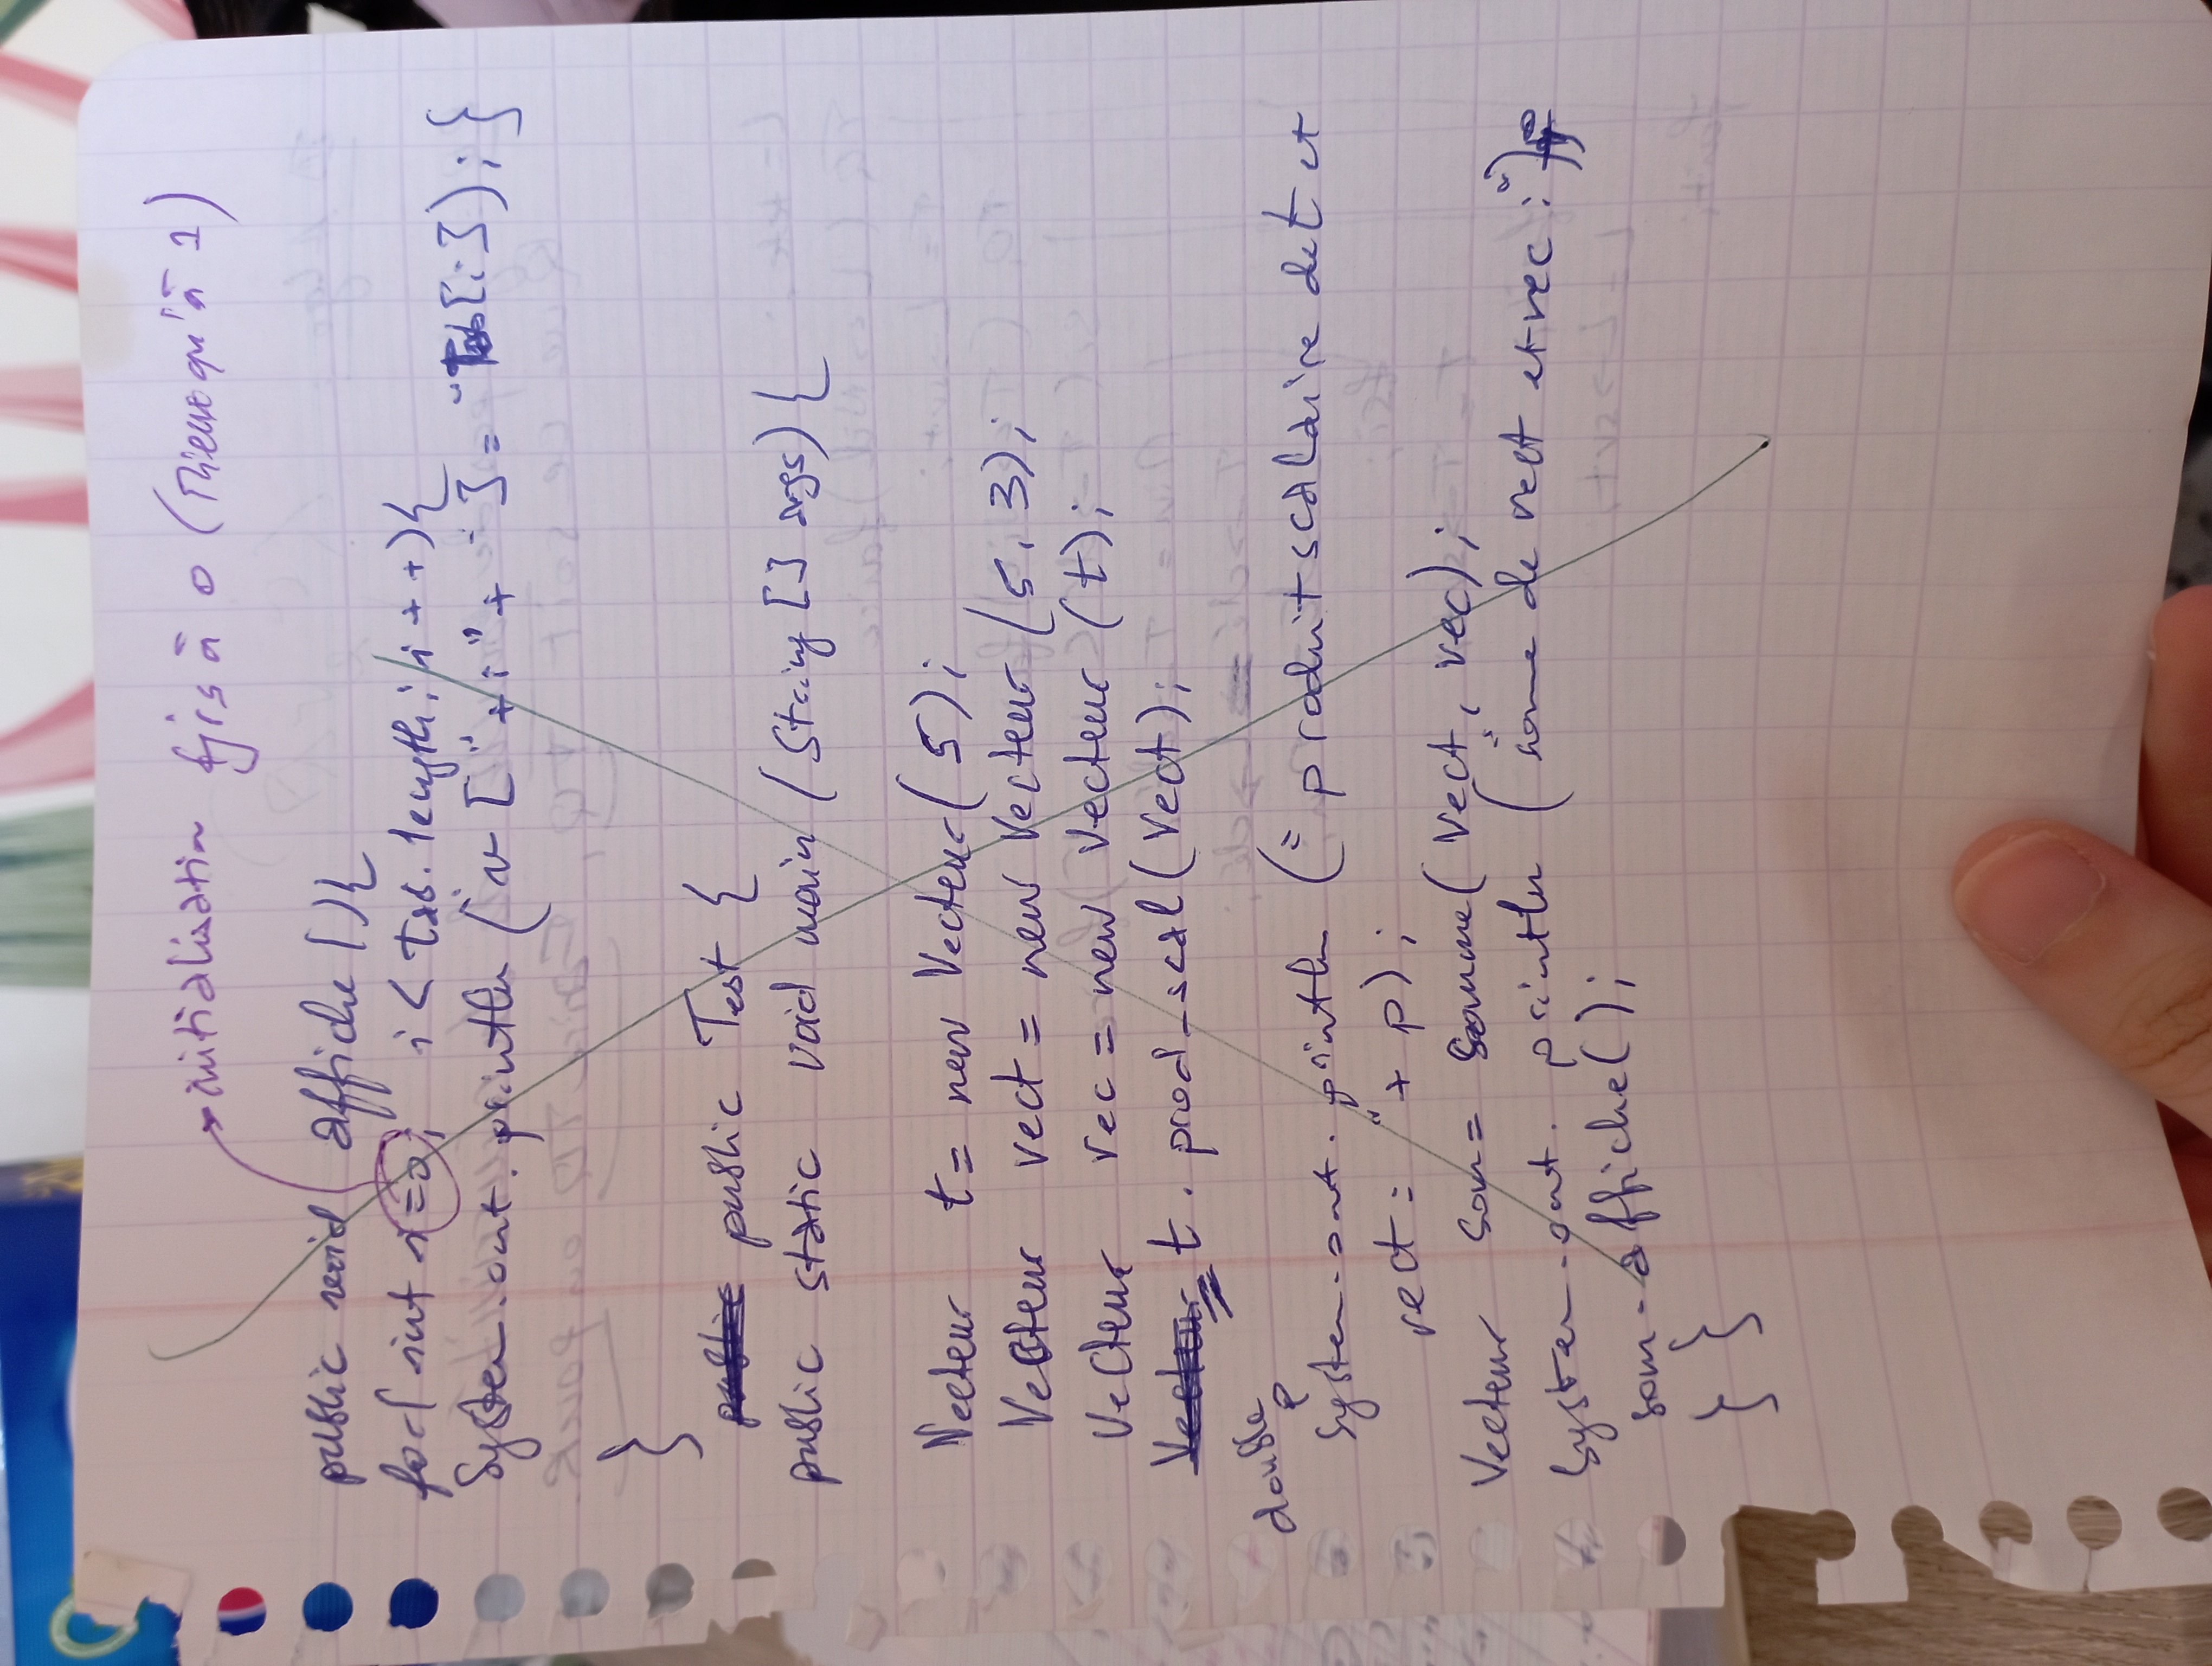 initialisation tjrs à 0 (Mieux qu'à 1)
public void affiche(){
for( int i=0; i < tab.length; i++){
System.out.println ("v ["+i"+ "] = "Tab[i]); }
}
public Test {
public static void main (String [] args) {
Vecteur t= new Vecteur( 5);
Vecteur vect = new Vecteur (5, 3);
Vecteur vec = new Vecteur (t);
t. prod_scal(Vect);
double p
System.out.println (" produit scalaire de t et
vect = "+ p);
Vecteur som= somme( Vect, vec);
System.out. println ("some de vect et vec : ");
som.affiche();
} }